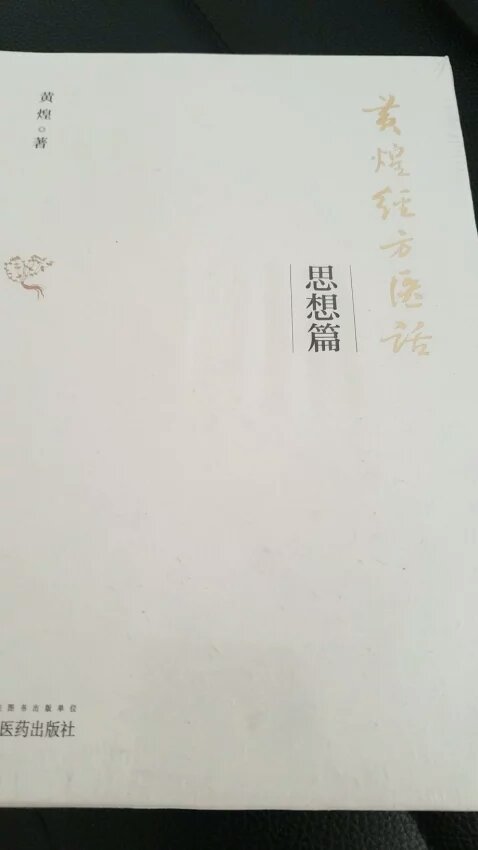 黄煌经方医话
思想篇
黄煌◎著
图书出版单位
医药出版社